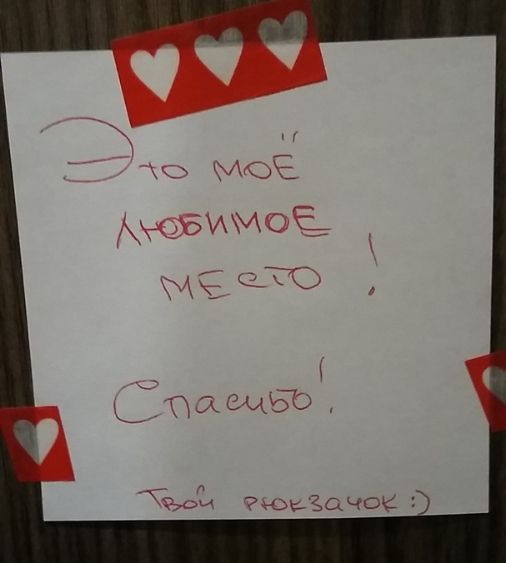 Это моё
любимое
место!
Спасибо!
Твой рюкзачок:)